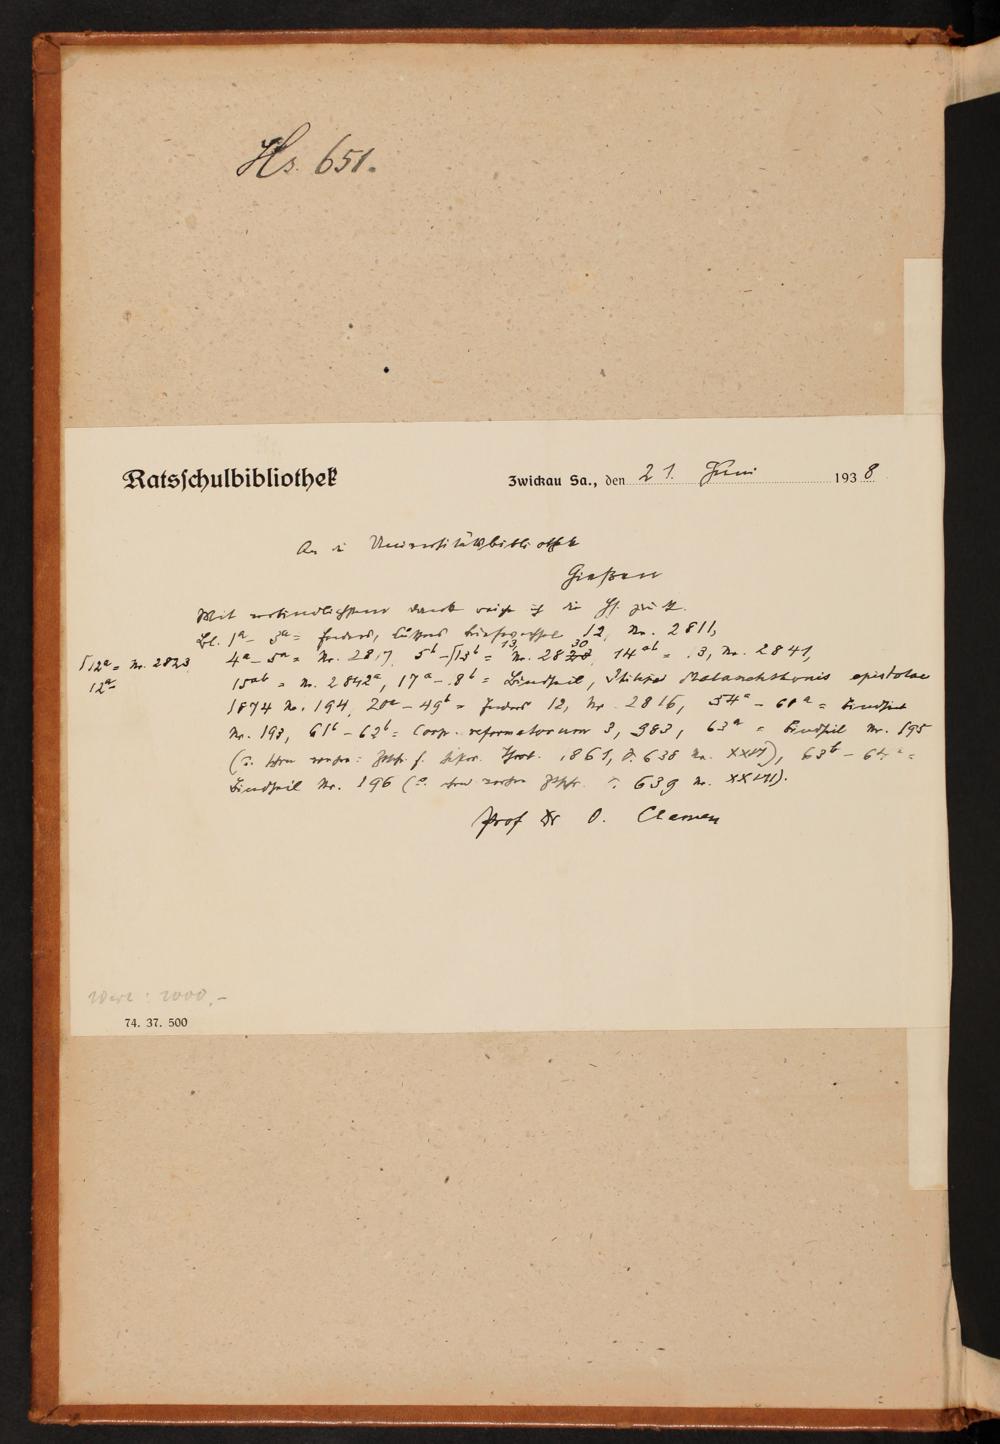 Hs. 651.
Ratsschulbibliothek
Zwickau Sa., den 21. Juni 1938
An die Universitätsbibliothek
Gießen
Mit verbindlichstem Dank reiche ich die Hs. zurück.
Bl. 1a - 3a = Enders, Luthers Briefwechsel 12, Nr. 2811,
4a - 5a = Nr. 2817, 5b - 13b = Nr. 2830, 14ab = 13, Nr. 2841,
12a = Nr. 2823
12a
15ab = Nr. 2842a, 17a - 18b = Bindseil, Philippi Melanchthonis epistolae
1874 Nr. 194, 20a - 49b = Enders 12, Nr. 2816, 54a - 60a = Bindseil
Nr. 193, 61b - 62b = Corp. reformatorum 3, 983, 63a = Bindseil Nr. 195
hist. Theol. 1861, S. 638 Nr. XXVI), 63b - 64a =
Bindseil Nr. 196 S. 639 Nr. XXVII).
Prof Dr O. Clemen
Wert: 2000,-
74. 37. 500